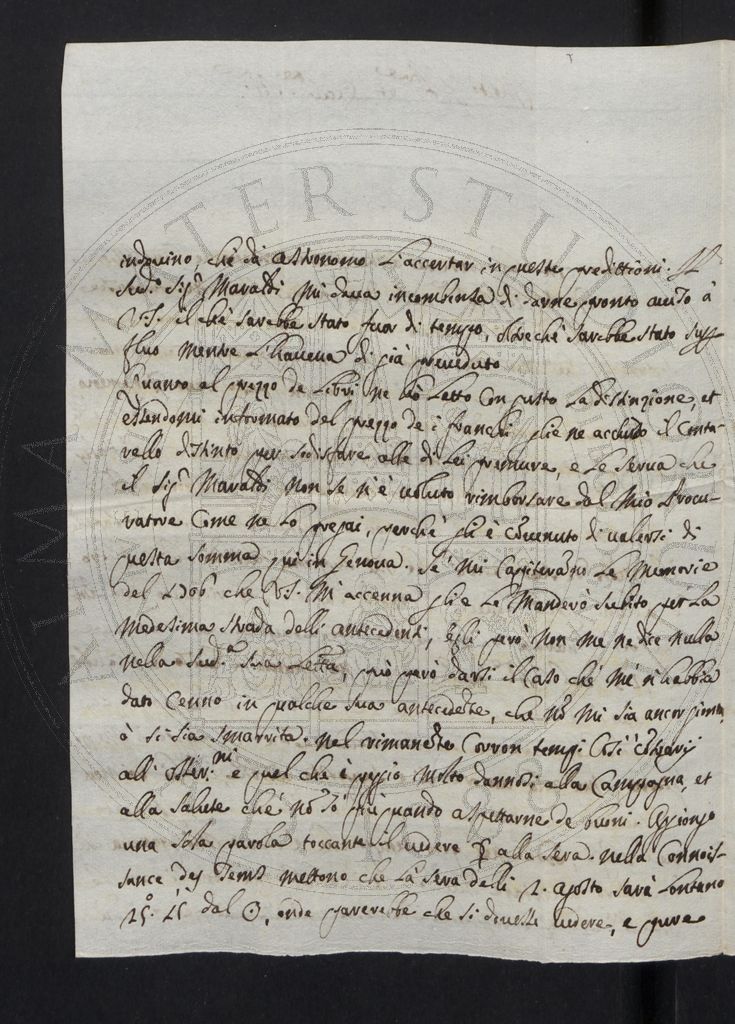 indovino, che da Astronomo l'accertar in queste predittioni. Il
sud.º Sig.r Maraldi mi dava incombenza di darne pronto aviso à
V.S. il chè sarebbe stato fuor di tempo, oltreche sarebbe stato super-
fluo mentre l'haveva di già preveduto
Quanto al prezzo de Libri ne hò letto con gusto la distinzione, et
essendomi informato del prezzo de i franchi glie ne acchiudo il Carta-
vello distinto per sodisfare alle di Lei premure, e Le serva che
il Sig.r Maraldi non se n'è voluto rimborsare dal mio Procu-
ratore come ne lo pregai, perchè gli è convenuto di valersi di
questa somma quì in Genova. Se mi capiteranno Le Memorie
del 1706 che V.S. m'accenna glie Le manderò subito per La
medesima strada delli antecedenti, Egli però non me ne dice nulla
nella sud.a sua Lettra, può però darsi il caso chè mè n'habbia
dato cenno in qualche sua antecedente, che nõ mi sia ancor giunta,
ò si sia smarrita. Nel rimanente corron tempi così contrarij
all' osser.ni e quel che è peggio molto dannosi alla Campagna, et
alla salute chè nõ sò più quando aspettarne de buoni. Aggiongo
una sola parola toccante il vedere alla sera. nella Connois-
sance des Tems mettono che la sera delli 1. agosto sarà lontano
15º. 15 dal ☉, onde parerebbe che si dovesse vedere, e pure